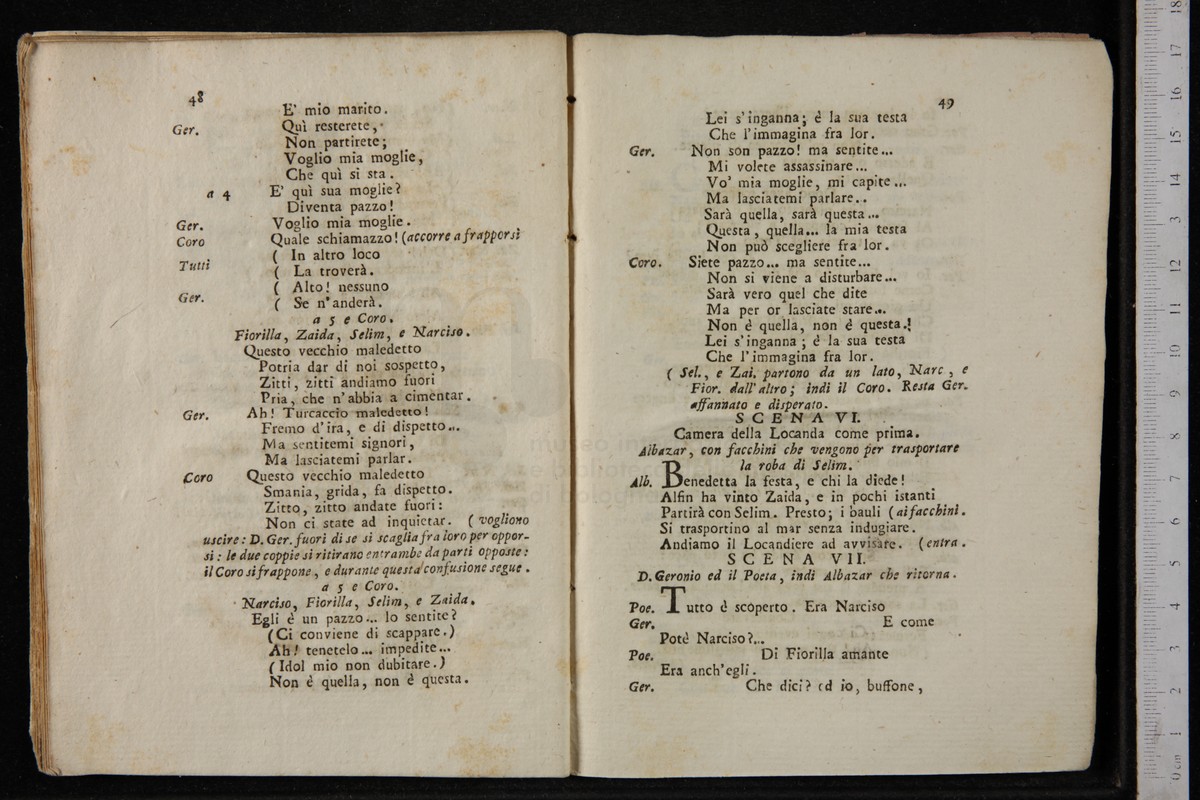 48
E' mio marito.
Ger. Quì resterete,
Non partirete;
Voglio mia moglie,
Che quì si sta.
a 4 E' quì sua moglie?
Diventa pazzo!
Ger. Voglio mia moglie.
Coro Quale schiamazzo! (accorre a frapporsi
Tutti ( In altro loco
( La troverà.
Ger. ( Alto! nessuno
( Se n'anderà.
a 5 e Coro.
Fiorilla, Zaida, Selim, e Narciso.
Questo vecchio maledetto
Potria dar di noi sospetto,
Zitti, zitti andiamo fuori
Pria, che n'abbia a cimentar.
Ger. Ah! Turcaccio maledetto!
Fremo d'ira, e di dispetto...
Ma sentitemi signori,
Ma lasciatemi parlar.
Coro Questo vecchio maledetto
Smania, grida, fa dispetto.
Zitto, zitto andate fuori:
Non ci state ad inquietar. ( vogliono
uscire: D. Ger. fuori di se si scaglia fra loro per oppor-
si: le due coppie si ritirano entrambe da parti opposte:
il Coro si frappone, e durante questa confusione segue.
a 5 e Coro.
Narciso, Fiorilla, Selim, e Zaida.
Egli è un pazzo... lo sentite?
(Ci conviene di scappare.)
Ah! tenetelo... impedite...
(Idol mio non dubitare.)
Non è quella, non è questa.
49
Lei s'inganna; è la sua testa
Che l'immagina fra lor.
Ger. Non son pazzo! ma sentite...
Mi volete assassinare...
Vo' mia moglie, mi capite...
Ma lasciatemi parlare..
Sarà quella, sarà questa...
Questa, quella... la mia testa
Non può scegliere fra lor.
Coro. Siete pazzo... ma sentite...
Non si viene a disturbare...
Sarà vero quel che dite
Ma per or lasciate stare...
Non è quella, non è questa.!
Lei s'inganna; è la sua testa
Che l'immagina fra lor.
( Sel., e Zai. partono da un lato, Narc, e
Fior. dall'altro; indi il Coro. Resta Ger.
affannato e disperato.
SCENA VI.
Camera della Locanda come prima.
Albazar, con facchini che vengono per trasportare
la roba di Selim.
Alb. Benedetta la festa, e chi la diede!
Alfin ha vinto Zaida, e in pochi istanti
Partirà con Selim. Presto; i bauli (ai facchini.
Si trasportino al mar senza indugiare.
Andiamo il Locandiere ad avvisare. (entra.
SCENA VII.
D. Geronio ed il Poeta, indi Albazar che ritorna.
Poe. Tutto è scoperto. Era Narciso
Ger. E come
Potè Narciso?...
Poe. Di Fiorilla amante
Era anch'egli.
Ger. Che dici? ed io, buffone,